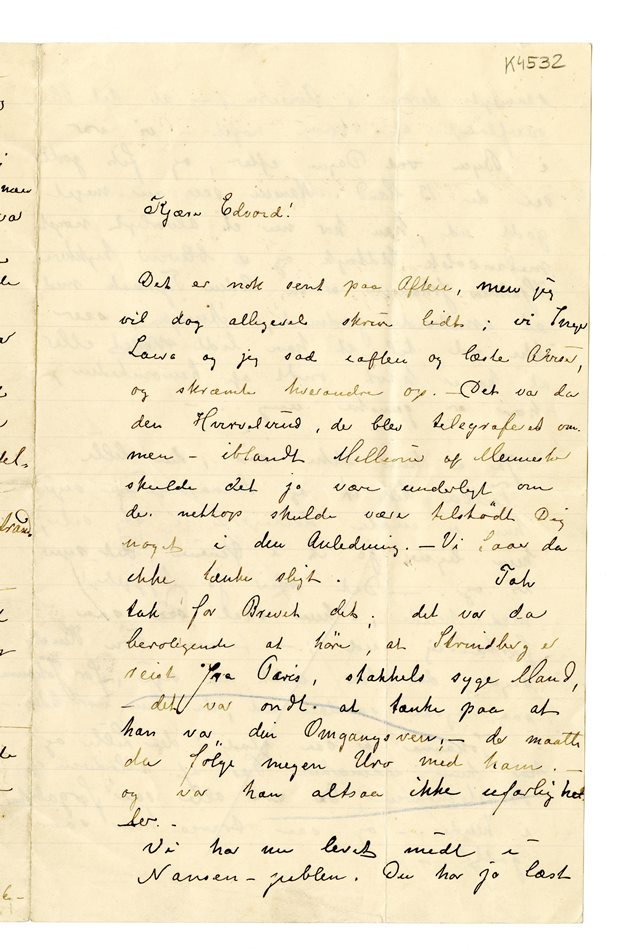 K4532
Kjære Edvard!
Det er nok sent paa Aften, men jeg
vil dog alligevel skrive lidt; vi Inger
Laura og jeg sad iaften og læste Aviser,
og skræmte hverandre op. – Det var da
den Hvirvelvind, de blev telegraferet om.
men – iblandt Millioner af Mennesker
skulde det jo være underligt om
de nettop skulde være tilstödt Dig
noget i den Anledning. – Vi faar da
ikke tænke sligt. Tak
tak for Brevet dit; det var da
beroligende at höre, at Strindberg er
reist fra Paris, stakkels syge Mand,
– det var ondt at tænke paa at
han var din Omgangsven, – de maatte
da følge megen Uro med ham. –
og var han altsaa ikke ufarlig hel
ler. –
Vi har nu levet midt i
Nansen-jublen. Du har jo læst